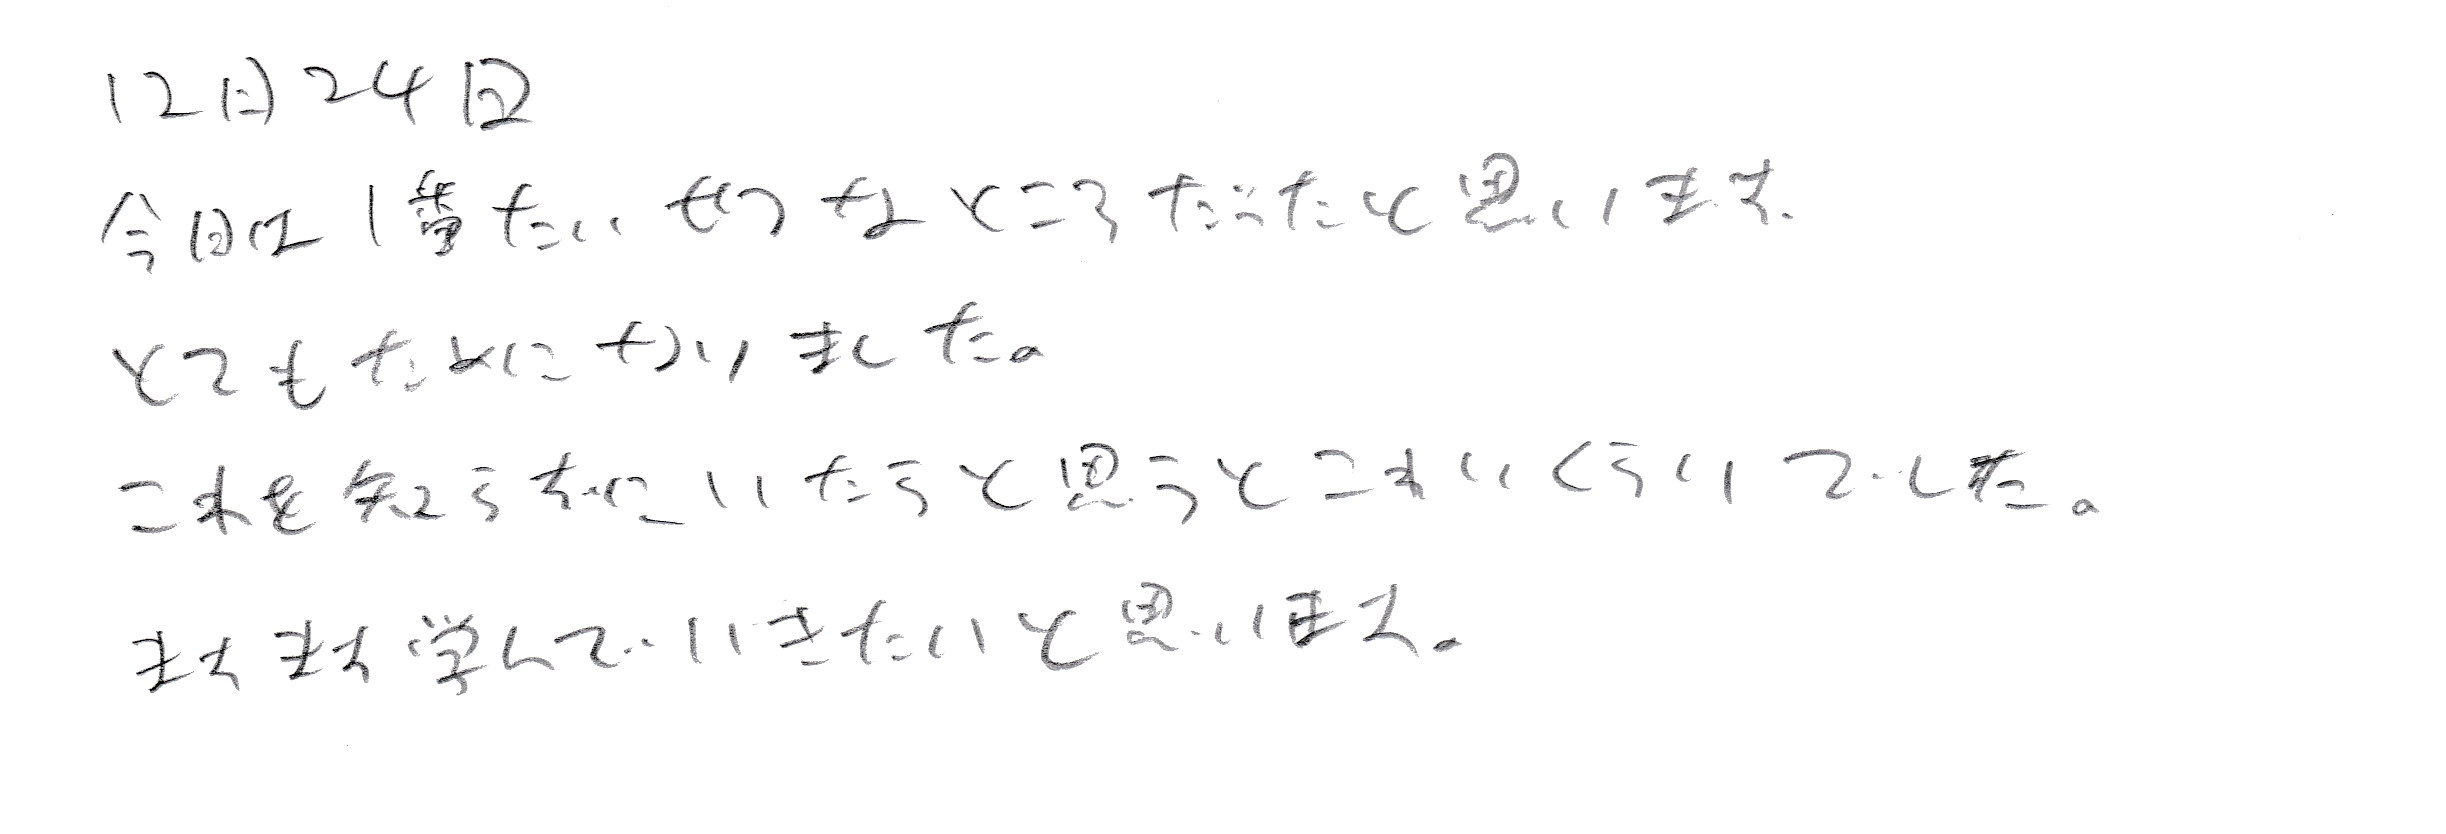 12日24日
今日は1番たいせつなところだったと思います
とてもためになりました。
これを知らずにいたらと思うとこわいくらいでした。
ますます学んでいきたいと思います。